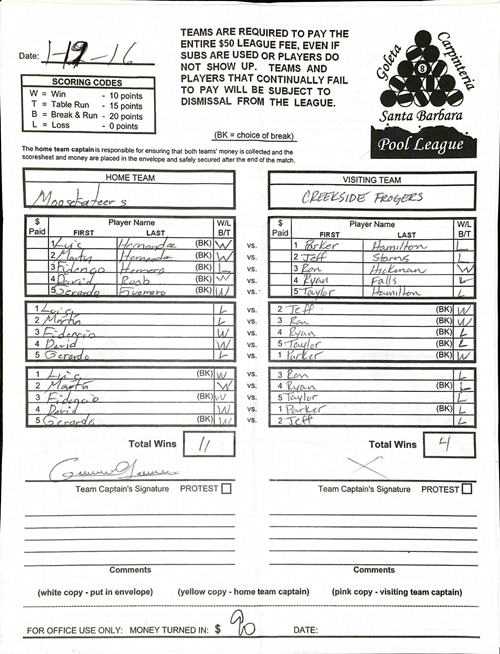 TEAMS ARE REQUIRED TO PAY THE
ENTIRE $50 LEAGUE FEE, EVEN IF
SUBS ARE USED OR PLAYERS DO
NOT SHOW UP. TEAMS AND
PLAYERS THAT CONTINUALLY FAIL
TO PAY WILL BE SUBJECT TO
DISMISSAL FROM THE LEAGUE.
Date: 1-19-16
SCORING CODES
W = Win - 10 points
T = Table Run - 15 points
B = Break & Run - 20 points
L = Loss - 0 points
Goleta
Carpinteria
8
Santa Barbara
Pool League
(BK = choice of break)
The home team captain is responsible for ensuring that both teams' money is collected and the
scoresheet and money are placed in the envelope and safely secured after the end of the match.
HOME TEAM VISITING TEAM
CREEKSIDE FROGERS
$ Paid Player Name FIRST LAST W/L B/T $ Paid Player Name FIRST LAST W/L B/T
1 Luis Hernandez (BK) W vs. 1 Parker Hamilton L
2 Martin Hernandez (BK) W vs. 2 Jeff Starns L
3 Fidencio Herrera (BK) L vs. 3 Ron Hickman W
4 David Raab (BK) W vs. 4 Ryan Falls L
5 Gerardo Guerrero (BK) W vs. 5 Taylor Hamilton L
1 Luis L vs. 2 Jeff (BK) W
2 Martin L vs. 3 Ron (BK) W
3 Fidencio W vs. 4 Ryan (BK) L
4 David W vs. 5 Taylor (BK) L
5 Gerardo L vs. 1 Parker (BK) W
1 Luis (BK) W vs. 3 Ron L
2 Martin W vs. 4 Ryan (BK) L
3 Fidencio (BK) W vs. 5 Taylor L
4 David W vs. 1 Parker (BK) L
5 Gerardo (BK) W vs. 2 Jeff L
Total Wins 11 Total Wins 4
X
Team Captain's Signature PROTEST Team Captain's Signature PROTEST
Comments Comments
(white copy - put in envelope) (yellow copy - home team captain) (pink copy - visiting team captain)
FOR OFFICE USE ONLY: MONEY TURNED IN: $ 90 DATE: